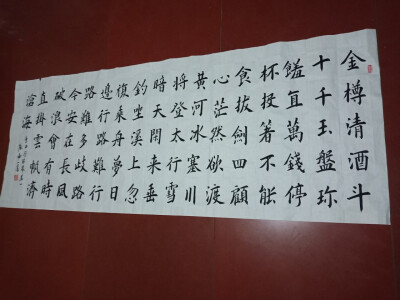 金樽清酒斗
十千玉盤珍
饈直萬錢停
杯投箸不能
食拔劍四顧
心茫然欲渡
黄河冰塞川
將登太行雪
暗天閑來垂
釣坐溪上忽
復乘舟夢日
邊行路難行
路難多歧路
今安在長風
破浪會有時
直掛雲帆濟
滄海